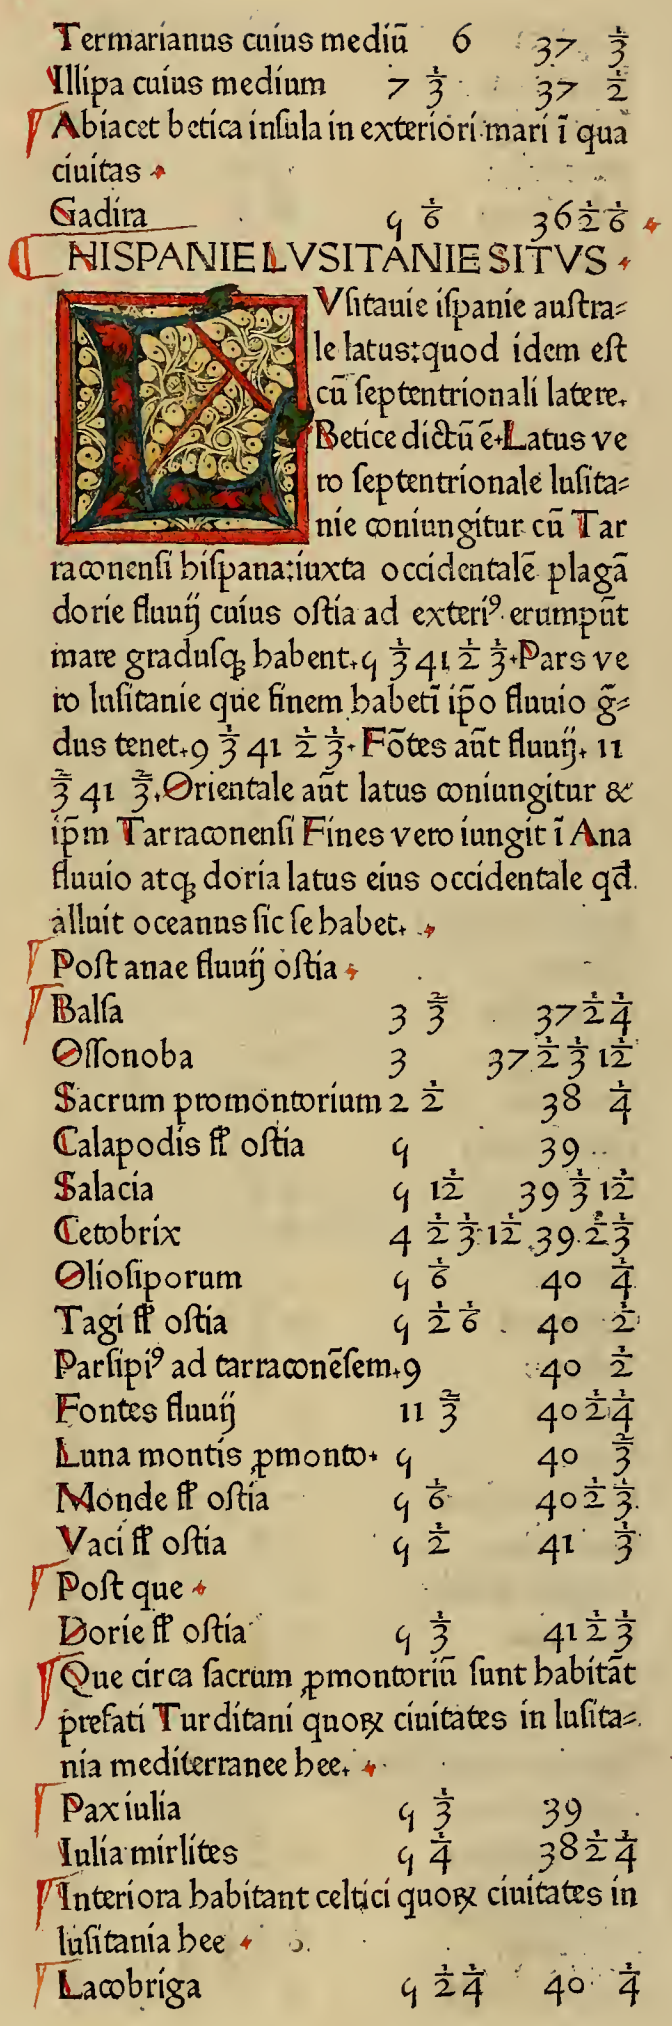 Termarianus cuius mediū 6 37 1/3
Illipa cuius medium 7 1/3 37 1/2
Abiacet betica inſula in exteriori mari ī qua
ciuitas
Gadira 5 1/6 36 1/2 1/6
HISPANIE LVSITANIE SITVS
LVſitanie iſpanie auſtra⸗
le latus: quod idem eſt
cū ſeptentrionali latere.
Betice dictū ē. Latus ve
ro ſeptentrionale luſita⸗
nie coniungitur cū Tar
raconenſi hiſpana: iuxta occidentalē plagā
dorie fluuij cuius oſtia ad exteriꝰ erumpūt
mare graduſqꝫ habent. 5 1/3 41 1/2 1/3. Pars ve
ro luſitanie que finem habet ī ip̄o fluuio ḡ⸗
dus tenet. 9 1/3 41 1/2 1/3. Fōtes aūt fluuij. 11
2/3 41 2/3. Orientale aūt latus coniungitur &
ip̄m Tarraconenſi Fines vero iungit ī Ana
fluuio atqꝫ doria latus eius occidentale qđ
alluit oceanus ſic ſe habet.
Poſt anae fluuij oſtia
Balſa 3 2/3 37 1/2 1/4
Oſſonoba 3 37 1/2 1/3 1/12
Sacrum promontorium 2 1/2 38 1/4
Calapodis ſſ oſtia 5 39
Salacia 5 1/12 39 1/3 1/12
Cetobrix 4 1/2 1/3 1/12 39 1/2 1/3
Olioſiporum 5 1/6 40 1/4
Tagi ſſ oſtia 5 1/2 1/6 40 1/2
Parſipiꝰ ad tarraconēſem. 9 40 1/2
Fontes fluuij 11 2/3 40 1/2 1/4
Luna montis ꝓmonto. 5 40 2/3
Monde ſſ oſtia 5 1/6 40 1/2 1/3
Vaci ſſ oſtia 5 1/2 41 1/3
Poſt que
Dorie ſſ oſtia 5 1/3 41 1/2 1/3
Que circa ſacrum ꝓmontoriū ſunt habitāt
prefati Turditani quoꝝ ciuitates in luſita⸗
nia mediterranee hee.
Pax iulia 5 1/3 39
Iulia mirlites 5 1/4 38 1/2 1/4
Interiora habitant celtici quoꝝ ciuitates in
luſitania hee
Lacobriga 5 1/2 1/4 40 1/4